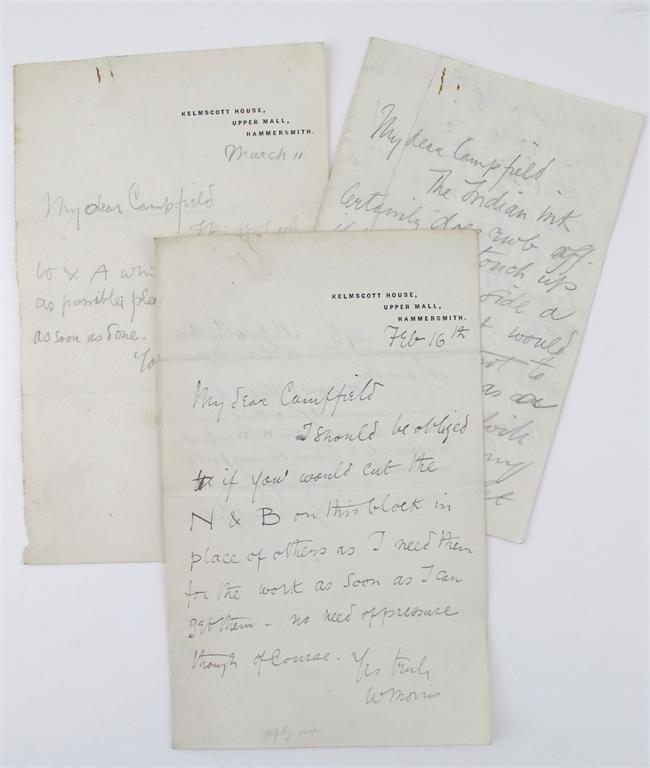 KELMSCOTT HOUSE,
UPPER MALL,
HAMMERSMITH.
March 11
My dear Campfield
W & A
as possible
as soon as done.
My dear Campfield
The Indian ink
certainly does rub off.
touch up
side a
would
to
as
KELMSCOTT HOUSE,
UPPER MALL,
HAMMERSMITH.
Feb 16th
My dear Campfield
I should be obliged
if you would cut the
N & B on this block in
place of others as I need them
for the work as soon as I can
get them – no need of pressure
though of course.
Yrs truly
W Morris